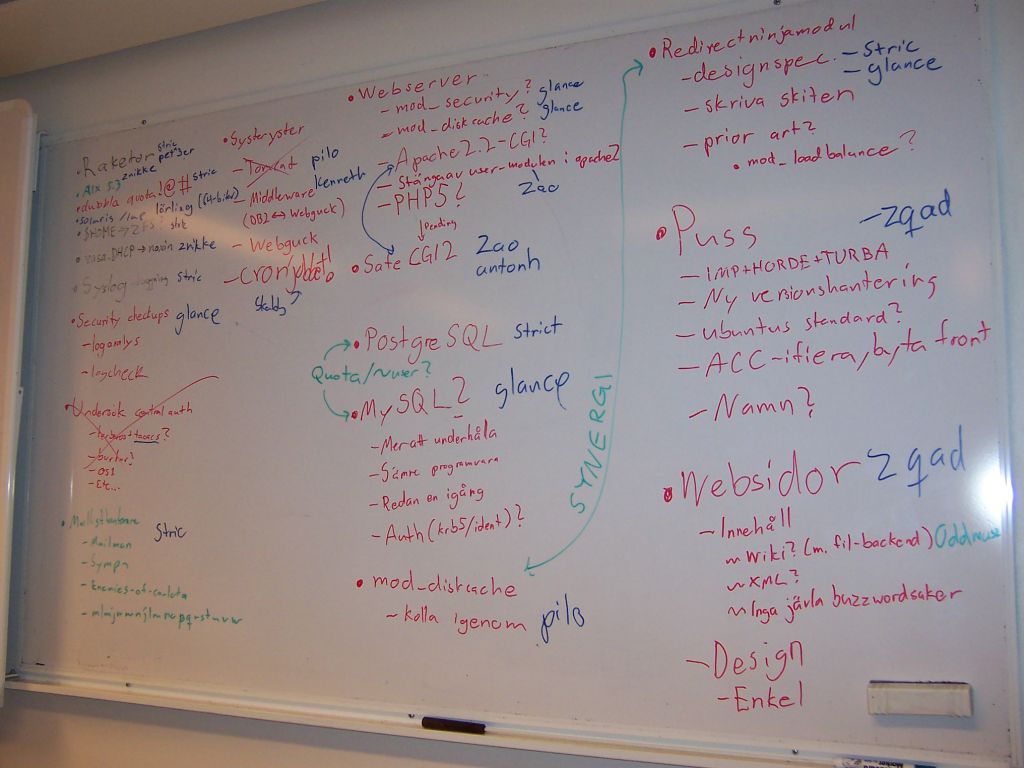 • Raketor stric petser
• AIX 5.3 znikke
• dubbla quota!@# stric
• solaris
• $HOME → ZFS?
DHCP → novin znikke
• Syslog stric
• Security checkups glance
- loganalys
- logcheck
• Undersök central auth
- tacacs?
- burkar?
- OS1
- Etc...
stric
- Mailman
- Sympa
- Enemies-of-carlota
• Systeryster
- Tomcat pilo
- Middleware kenneth
(DB2 ↔ Webguck)
- Webguck
- CRONjobb!
• Webserver
- mod_security? glance
- mod_diskcache? glance
- Apache2.2-CGI?
- Stänga av user-modulen i apache2
Zao
- PHP5?
↓ Pending
• Safe CGI2 Zao
antonh
• PostgreSQL strict
Quota/~user?
• MySQL2 glance
- Mer att underhålla
- Sämre programvara
- Redan en igång
- Auth (krb5/ident)?
• mod_diskcache
~ kolla igenom pilo
SYNERGI
• Redirectninjamodul
- designspec. - Stric
- glance
- skriva skiten
- prior art?
• mod_loadbalance?
• Puss - zqad
- IMP+HORDE+TURBA
- Ny versionshantering
- ubuntus standard?
- ACC-ifiera, byta front
- Namn?
• Websidor zqad
- Innehåll
~ Wiki? (m. fil-backend) Oddmuse
~ XML?
~ Inga jävla buzzwordsaker
- Design
- Enkel